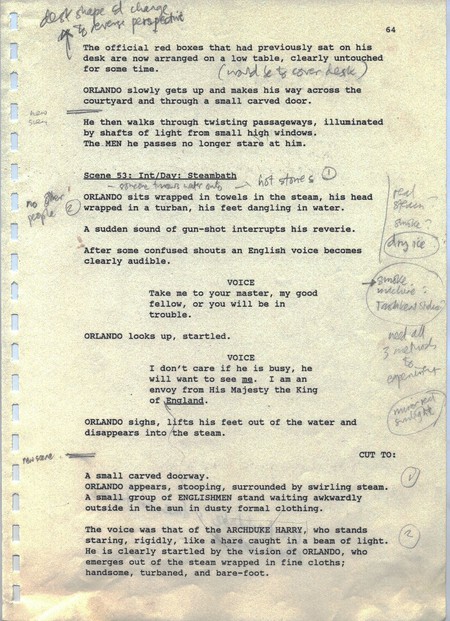 desk shape of change
to reverse perspective
64
The official red boxes that had previously sat on his
desk are now arranged on a low table, clearly untouched
for some time.
(would be to cover desk)
ORLANDO slowly gets up and makes his way across the
courtyard and through a small carved door.
new
scene
He then walks through twisting passageways, illuminated
by shafts of light from small high windows.
The MEN he passes no longer stare at him.
Scene 53: Int/Day: Steambath
someone throws water onto → hot stones ①
no other
people ②
ORLANDO sits wrapped in towels in the steam, his head
wrapped in a turban, his feet dangling in water.
real
steam
smoke?
dry ice
A sudden sound of gun-shot interrupts his reverie.
After some confused shouts an English voice becomes
clearly audible.
→ smoke
machine?
VOICE
Take me to your master, my good
fellow, or you will be in
trouble.
ORLANDO looks up, startled.
need all
3 methods
to
experiment
VOICE
I don't care if he is busy, he
will want to see me. I am an
envoy from His Majesty the King
of England.
sunlight
ORLANDO sighs, lifts his feet out of the water and
disappears into the steam.
new scene
CUT TO:
A small carved doorway.
①
ORLANDO appears, stooping, surrounded by swirling steam.
A small group of ENGLISHMEN stand waiting awkwardly
outside in the sun in dusty formal clothing.
The voice was that of the ARCHDUKE HARRY, who stands
②
staring, rigidly, like a hare caught in a beam of light.
He is clearly startled by the vision of ORLANDO, who
emerges out of the steam wrapped in fine cloths;
handsome, turbaned, and bare-foot.